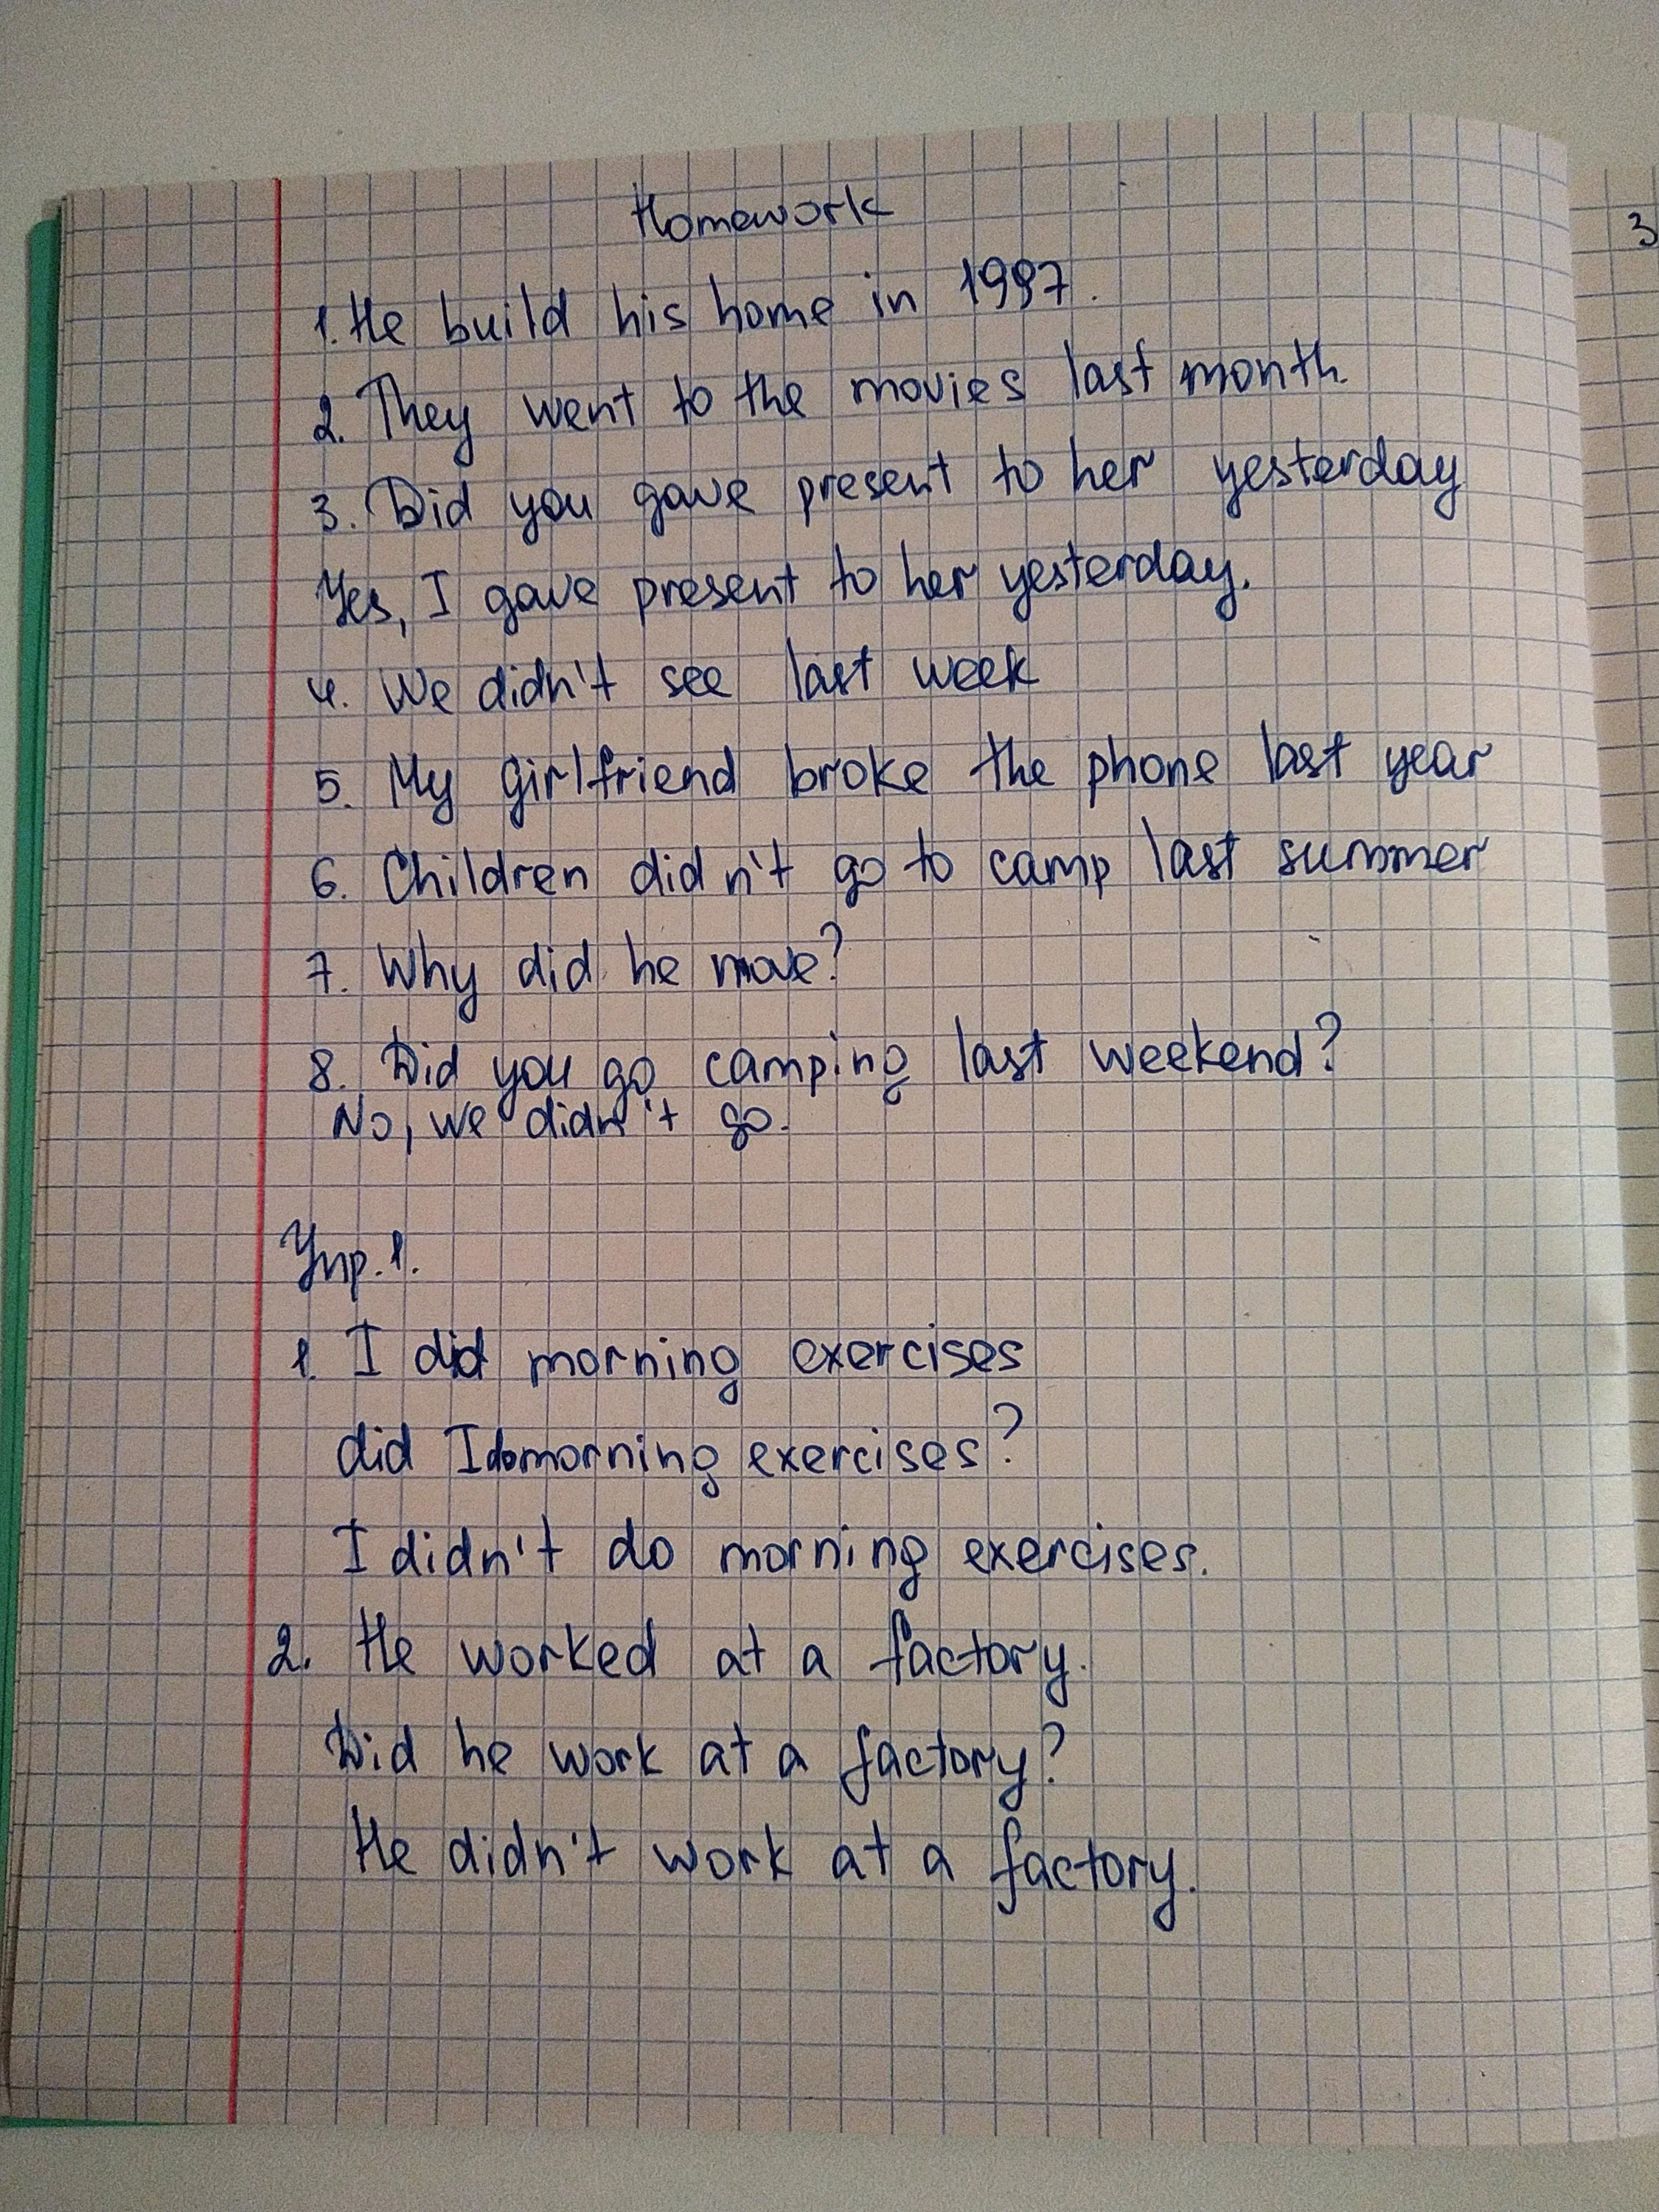 Homework
1. He build his home in 1997.
2. They went to the movies last month.
3. Did you gave present to her yesterday
Yes, I gave present to her yesterday.
4. We didn't see last week
5. My girlfriend broke the phone last year
6. Children didn't go to camp last summer
7. Why did he move?
8. Did you go camping last weekend?
No, we didn't go.
Упр. 1.
1. I did morning exercises
did I do morning exercises?
I didn't do morning exercises.
2. He worked at a factory.
Did he work at a factory?
He didn't work at a factory.
3